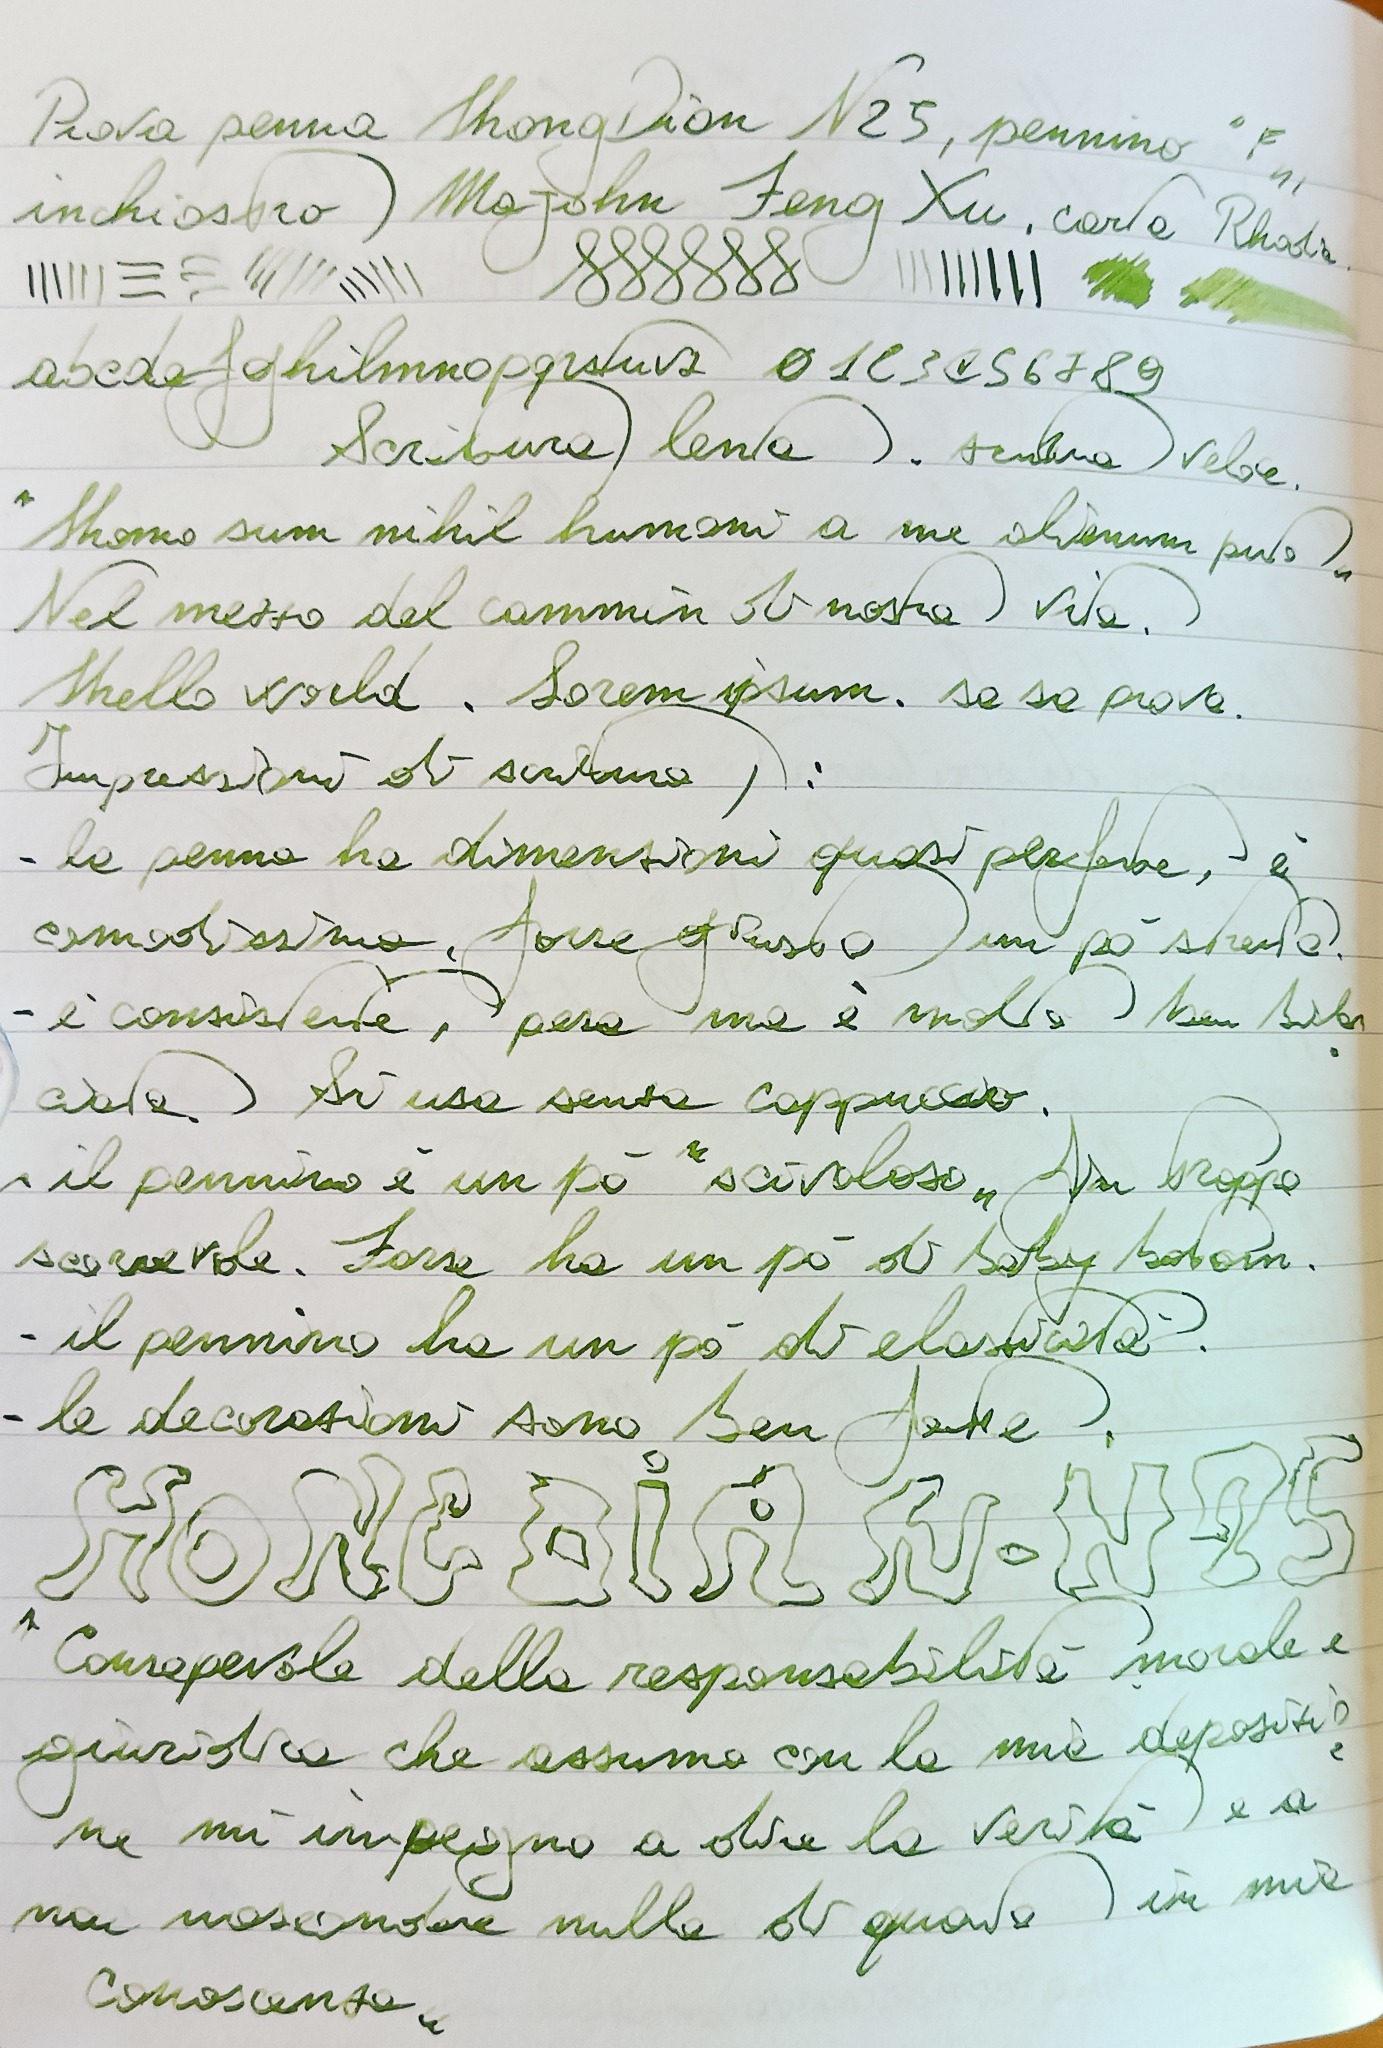 Prova penna HongDian N25, pennino "F„,
inchiostro Majohn Feng Xu, carta Rhodia.
abcdefghilmnopqrstuvz 0123456789
Scrittura lenta. scrittura veloce.
"Homo sum nihil humani a me alienum puto„
Nel mezzo del cammin di nostra vita.
Hello world. Lorem ipsum. sa sa prova.
Impressioni di scrittura:
- la penna ha dimensioni quasi perfette, è
comodissima, forse giusto un pò stretta.
- è consistente, pesa ma è molto ben bilan
ciata. Si usa senza cappuccio.
- il pennino è un pò "scivoloso„ fin troppo
scorrevole. Forse ha un pò di baby bottom.
- il pennino ha un pò di elasticità.
- le decorazioni sono ben fatte.
HONGDIAN N25
"Consapevole della responsabilità morale e
giuridica che assumo con la mia deposizio
ne mi impegno a dire la verità e a
non nascondere nulla di quanto in mia
conoscenza„